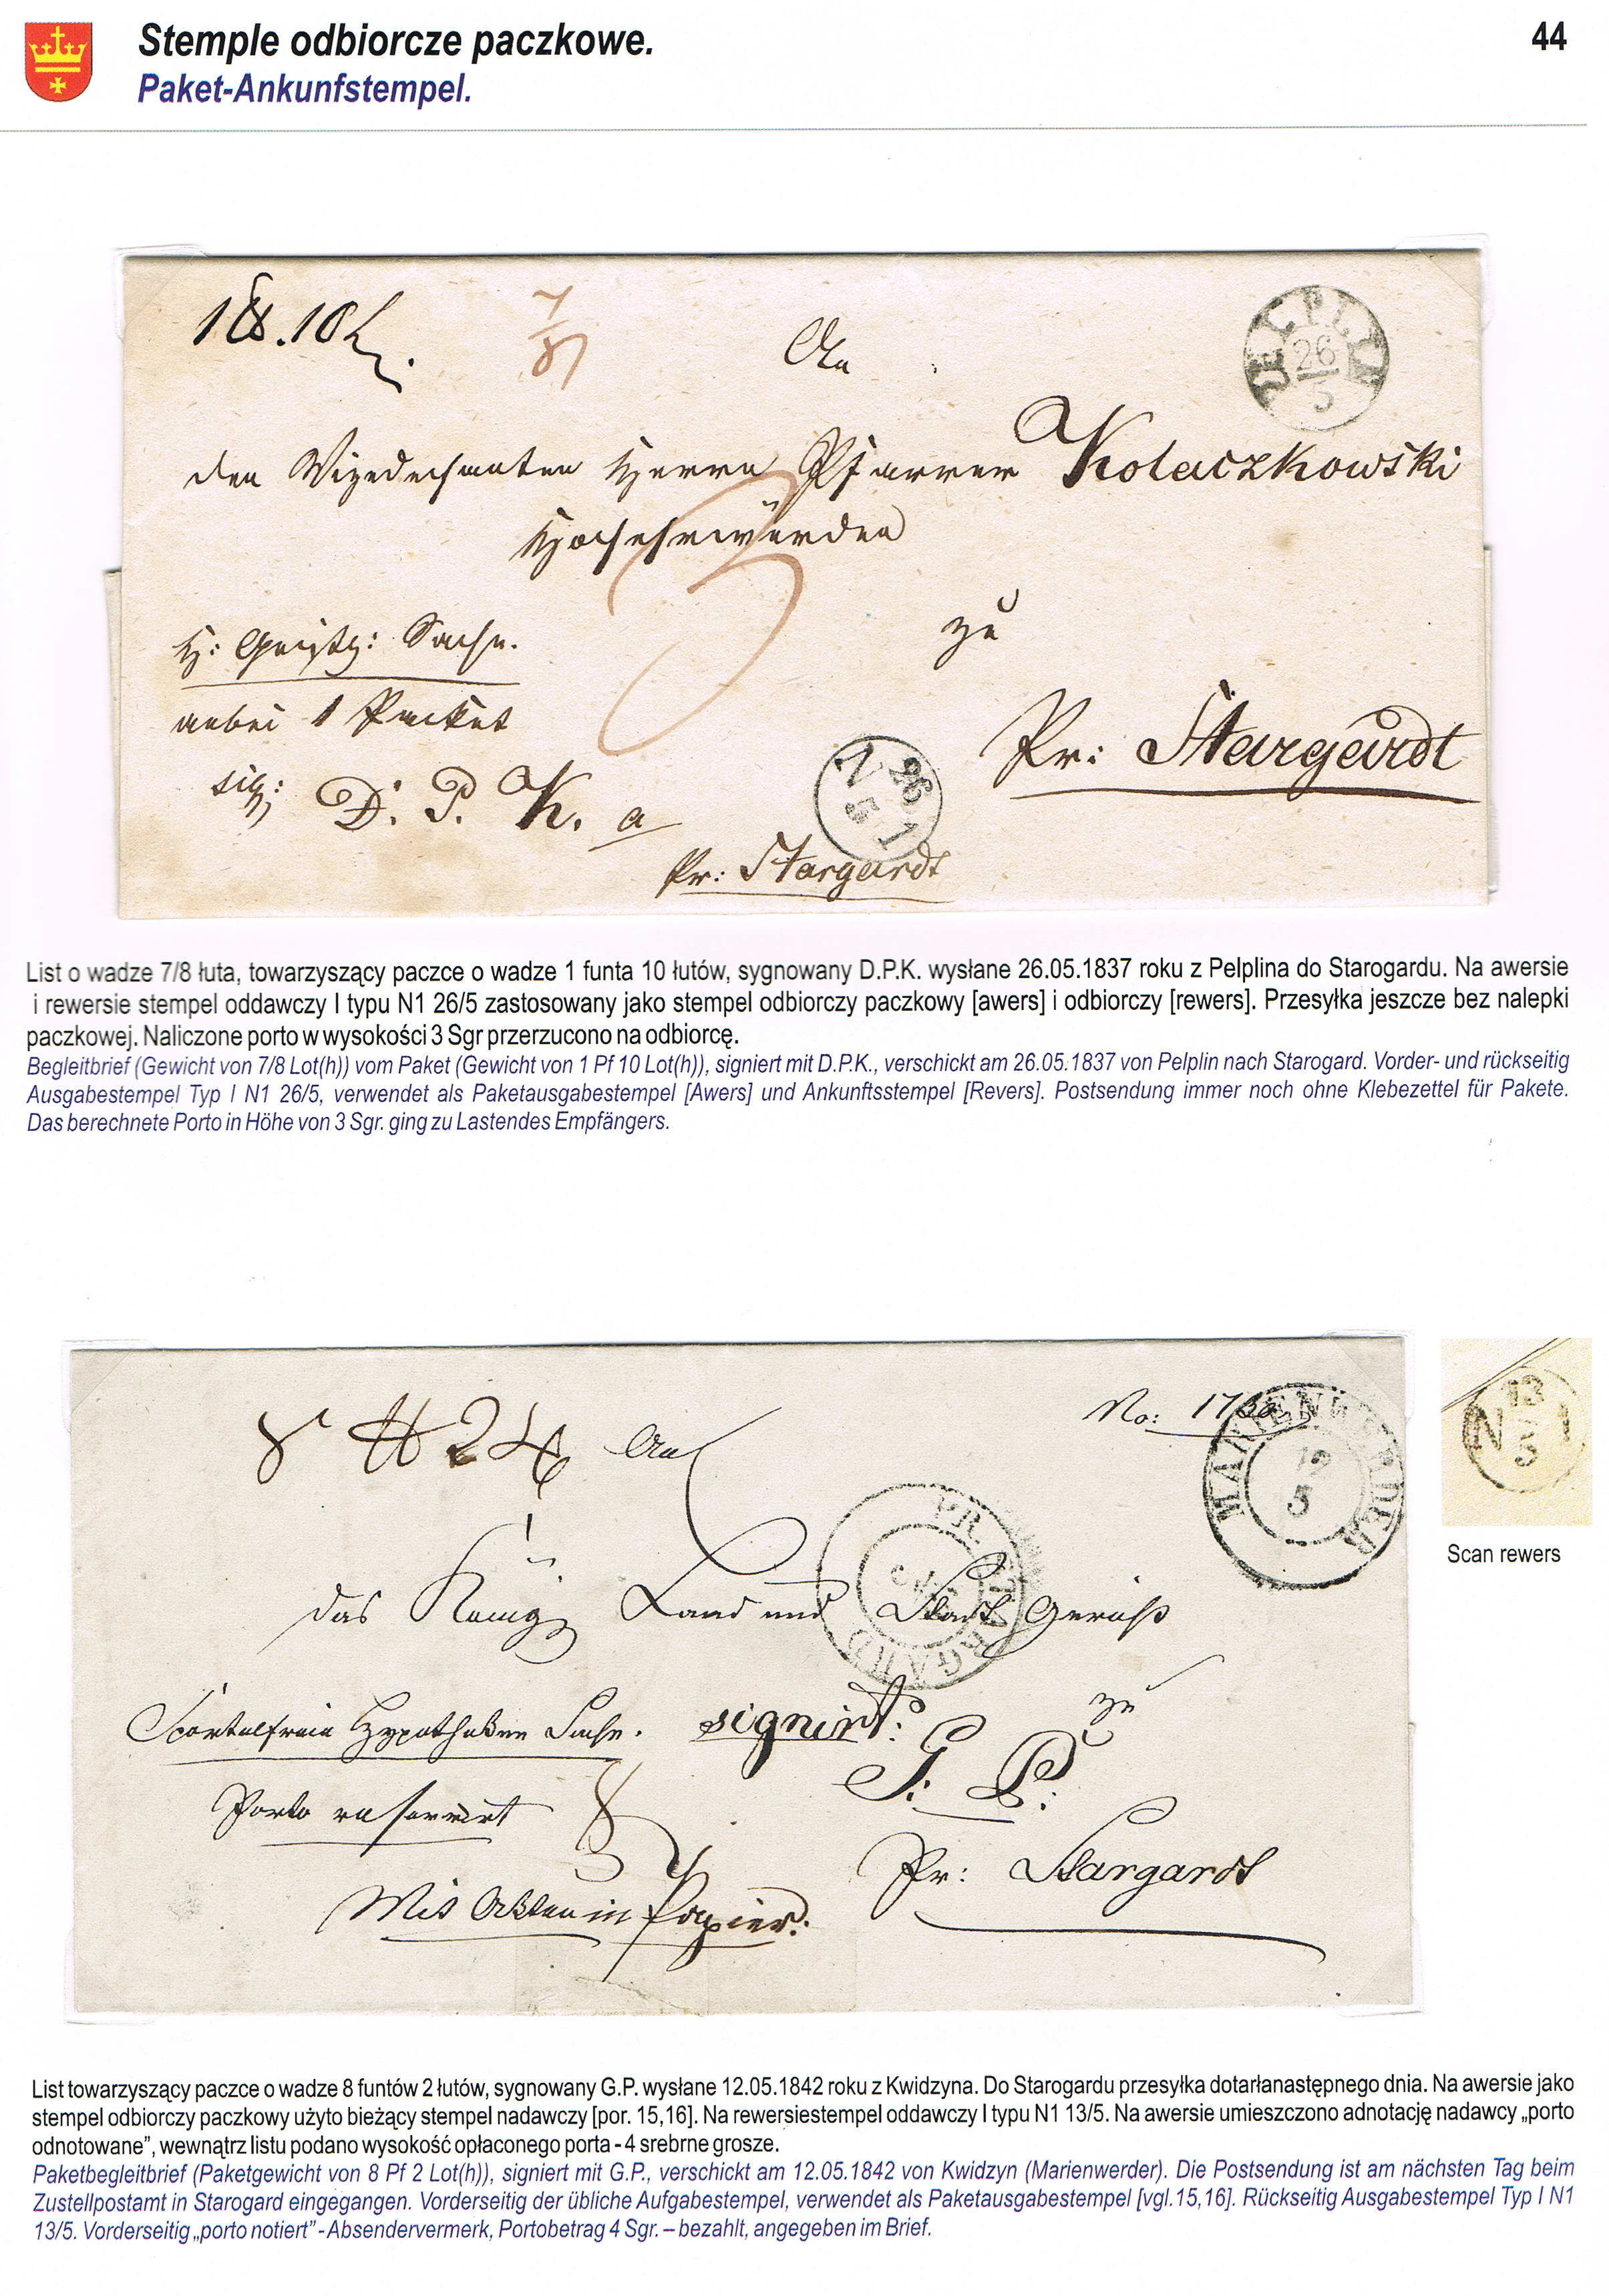 Stemple odbiorcze paczkowe.
44
Paket-Ankunfstempel.
An
PELPLIN
26
5
7/8
den Vizedechanten Herrn Pfarrer Kolaczkowski
Hochehrwürden
3
zu
H: Geistg: Sache.
anbei 1 Packet
Pr: Stargardt
sig: D. P. K. a
N 1
26
5
Pr: Stargardt
List o wadze 7/8 łuta, towarzyszący paczce o wadze 1 funta 10 łutów, sygnowany D.P.K. wysłane 26.05.1837 roku z Pelplina do Starogardu. Na awersie
i rewersie stempel oddawczy I typu N1 26/5 zastosowany jako stempel odbiorczy paczkowy [awers] i odbiorczy [rewers]. Przesyłka jeszcze bez nalepki
paczkowej. Naliczone porto w wysokości 3 Sgr przerzucono na odbiorcę.
Begleitbrief (Gewicht von 7/8 Lot(h)) vom Paket (Gewicht von 1 Pf 10 Lot(h)), signiert mit D.P.K., verschickt am 26.05.1837 von Pelplin nach Starogard. Vorder- und rückseitig
Ausgabestempel Typ I N1 26/5, verwendet als Paketausgabestempel [Awers] und Ankunftsstempel [Revers]. Postsendung immer noch ohne Klebezettel für Pakete.
Das berechnete Porto in Höhe von 3 Sgr. ging zu Lastendes Empfängers.
An
No:
MARIENWERDER
12
5
13
N 1
5
Scan rewers
PR. STARGARD
das Königl Land und Stadt Gericht
zu
Sportelfreie Hypotheken Sache.
signirt:
G: P:
Porto reservirt
Pr: Stargardt
Mit Akten in Papier.
List towarzyszący paczce o wadze 8 funtów 2 łutów, sygnowany G.P. wysłane 12.05.1842 roku z Kwidzyna. Do Starogardu przesyłka dotarłanastępnego dnia. Na awersie jako
stempel odbiorczy paczkowy użyto bieżący stempel nadawczy [por. 15,16]. Na rewersiestempel oddawczy I typu N1 13/5. Na awersie umieszczono adnotację nadawcy „porto
odnotowane”, wewnątrz listu podano wysokość opłaconego porta - 4 srebrne grosze.
Paketbegleitbrief (Paketgewicht von 8 Pf 2 Lot(h)), signiert mit G.P., verschickt am 12.05.1842 von Kwidzyn (Marienwerder). Die Postsendung ist am nächsten Tag beim
Zustellpostamt in Starogard eingegangen. Vorderseitig der übliche Aufgabestempel, verwendet als Paketausgabestempel [vgl.15,16]. Rückseitig Ausgabestempel Typ I N1
13/5. Vorderseitig „porto notiert” - Absendervermerk, Portobetrag 4 Sgr. – bezahlt, angegeben im Brief.